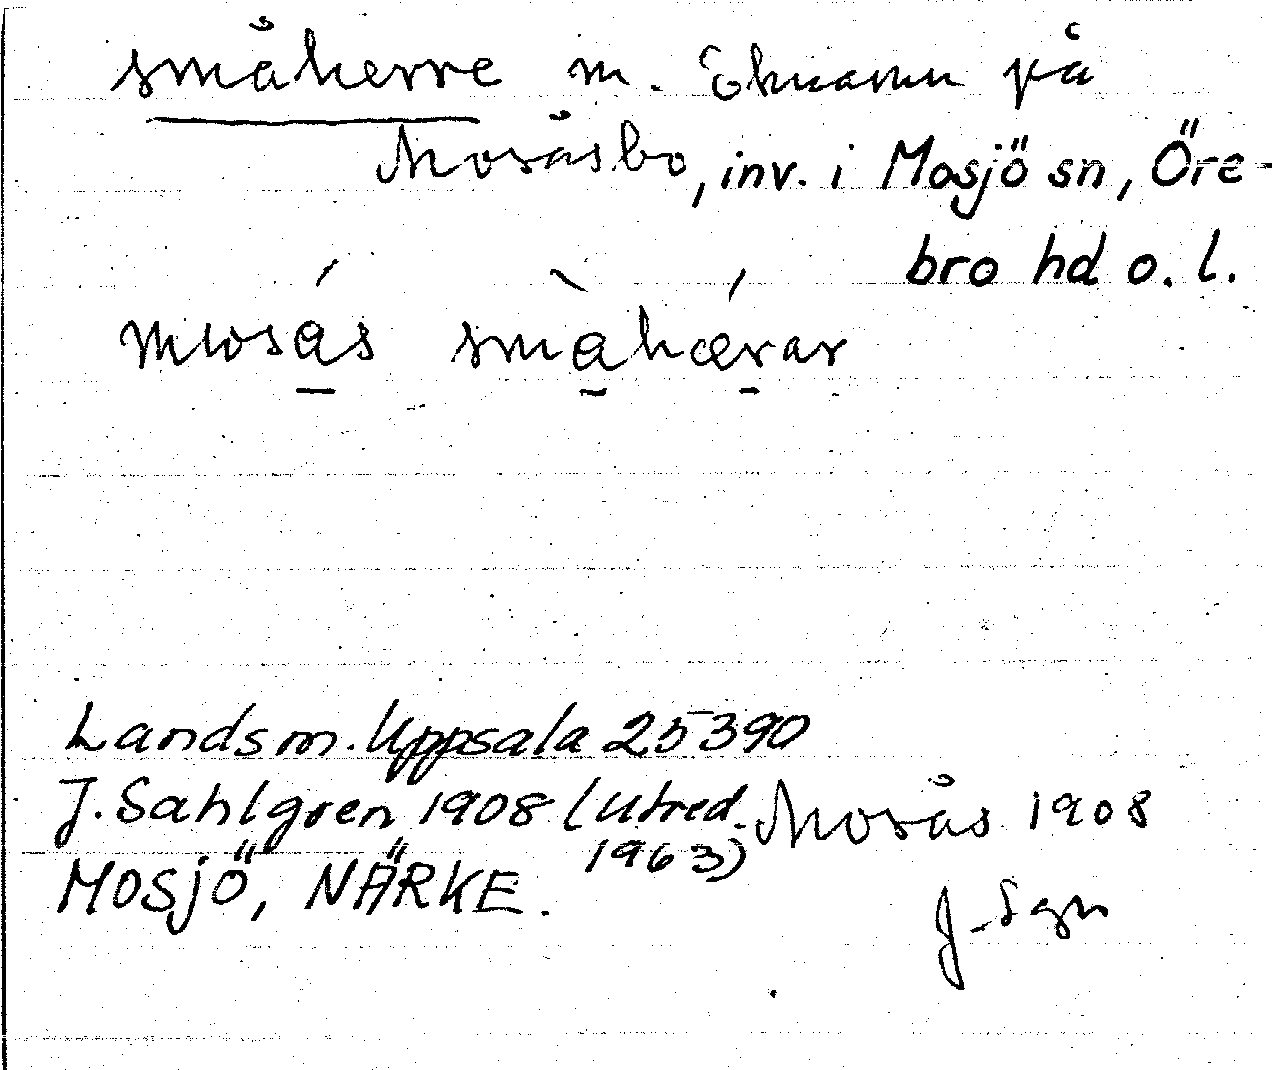 småherre m. Öknamn på
Mosåsbo, inv. i Mosjö sn, Öre-
bro hd o. l.
mosás småhærar
Landsm. Uppsala 25390
J. Sahlgren 1908 (utred. 1963)
MOSJÖ, NÄRKE.
Mosås 1908
J. Sgn